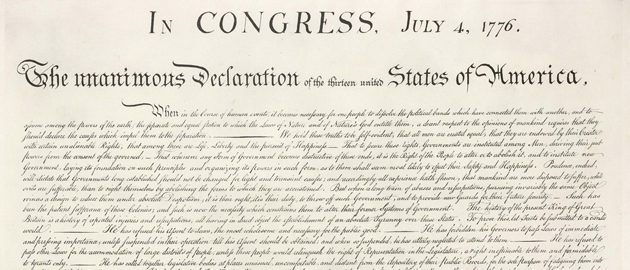 IN CONGRESS, JULY 4, 1776.
The unanimous Declaration of the thirteen united States of America,
When in the Course of human events, it becomes necessary for one people to dissolve the political bands which have connected them with another, and to
assume among the powers of the earth, the separate and equal station to which the Laws of Nature and of Nature's God entitle them, a decent respect to the opinions of mankind requires that they
should declare the causes which impel them to the separation. ——— We hold these truths to be self-evident, that all men are created equal, that they are endowed by their Creator
with certain unalienable Rights, that among these are Life, Liberty and the pursuit of Happiness.— That to secure these rights, Governments are instituted among Men, deriving their just
powers from the consent of the governed, — That whenever any Form of Government becomes destructive of these ends, it is the Right of the People to alter or to abolish it, and to institute new
Government, laying its foundation on such principles and organizing its powers in such form, as to them shall seem most likely to effect their Safety and Happiness. Prudence, indeed,
will dictate that Governments long established should not be changed for light and transient causes; and accordingly all experience hath shewn, that mankind are more disposed to suffer, while
evils are sufferable, than to right themselves by abolishing the forms to which they are accustomed. But when a long train of abuses and usurpations, pursuing invariably the same Object
evinces a design to reduce them under absolute Despotism, it is their right, it is their duty, to throw off such Government, and to provide new Guards for their future security.— Such has
been the patient sufferance of these Colonies; and such is now the necessity which constrains them to alter their former Systems of Government. The history of the present King of Great
Britain is a history of repeated injuries and usurpations, all having in direct object the establishment of an absolute Tyranny over these States. To prove this, let Facts be submitted to a candid
world. ——— He has refused his Assent to Laws, the most wholesome and necessary for the public good. ——— He has forbidden his Governors to pass Laws of immediate
and pressing importance, unless suspended in their operation till his Assent should be obtained; and when so suspended, he has utterly neglected to attend to them. ——— He has refused to
pass other Laws for the accommodation of large districts of people, unless those people would relinquish the right of Representation in the Legislature, a right inestimable to them and formidable
to tyrants only. ——— He has called together legislative bodies at places unusual, uncomfortable, and distant from the depository of their public Records, for the sole purpose of fatiguing them into